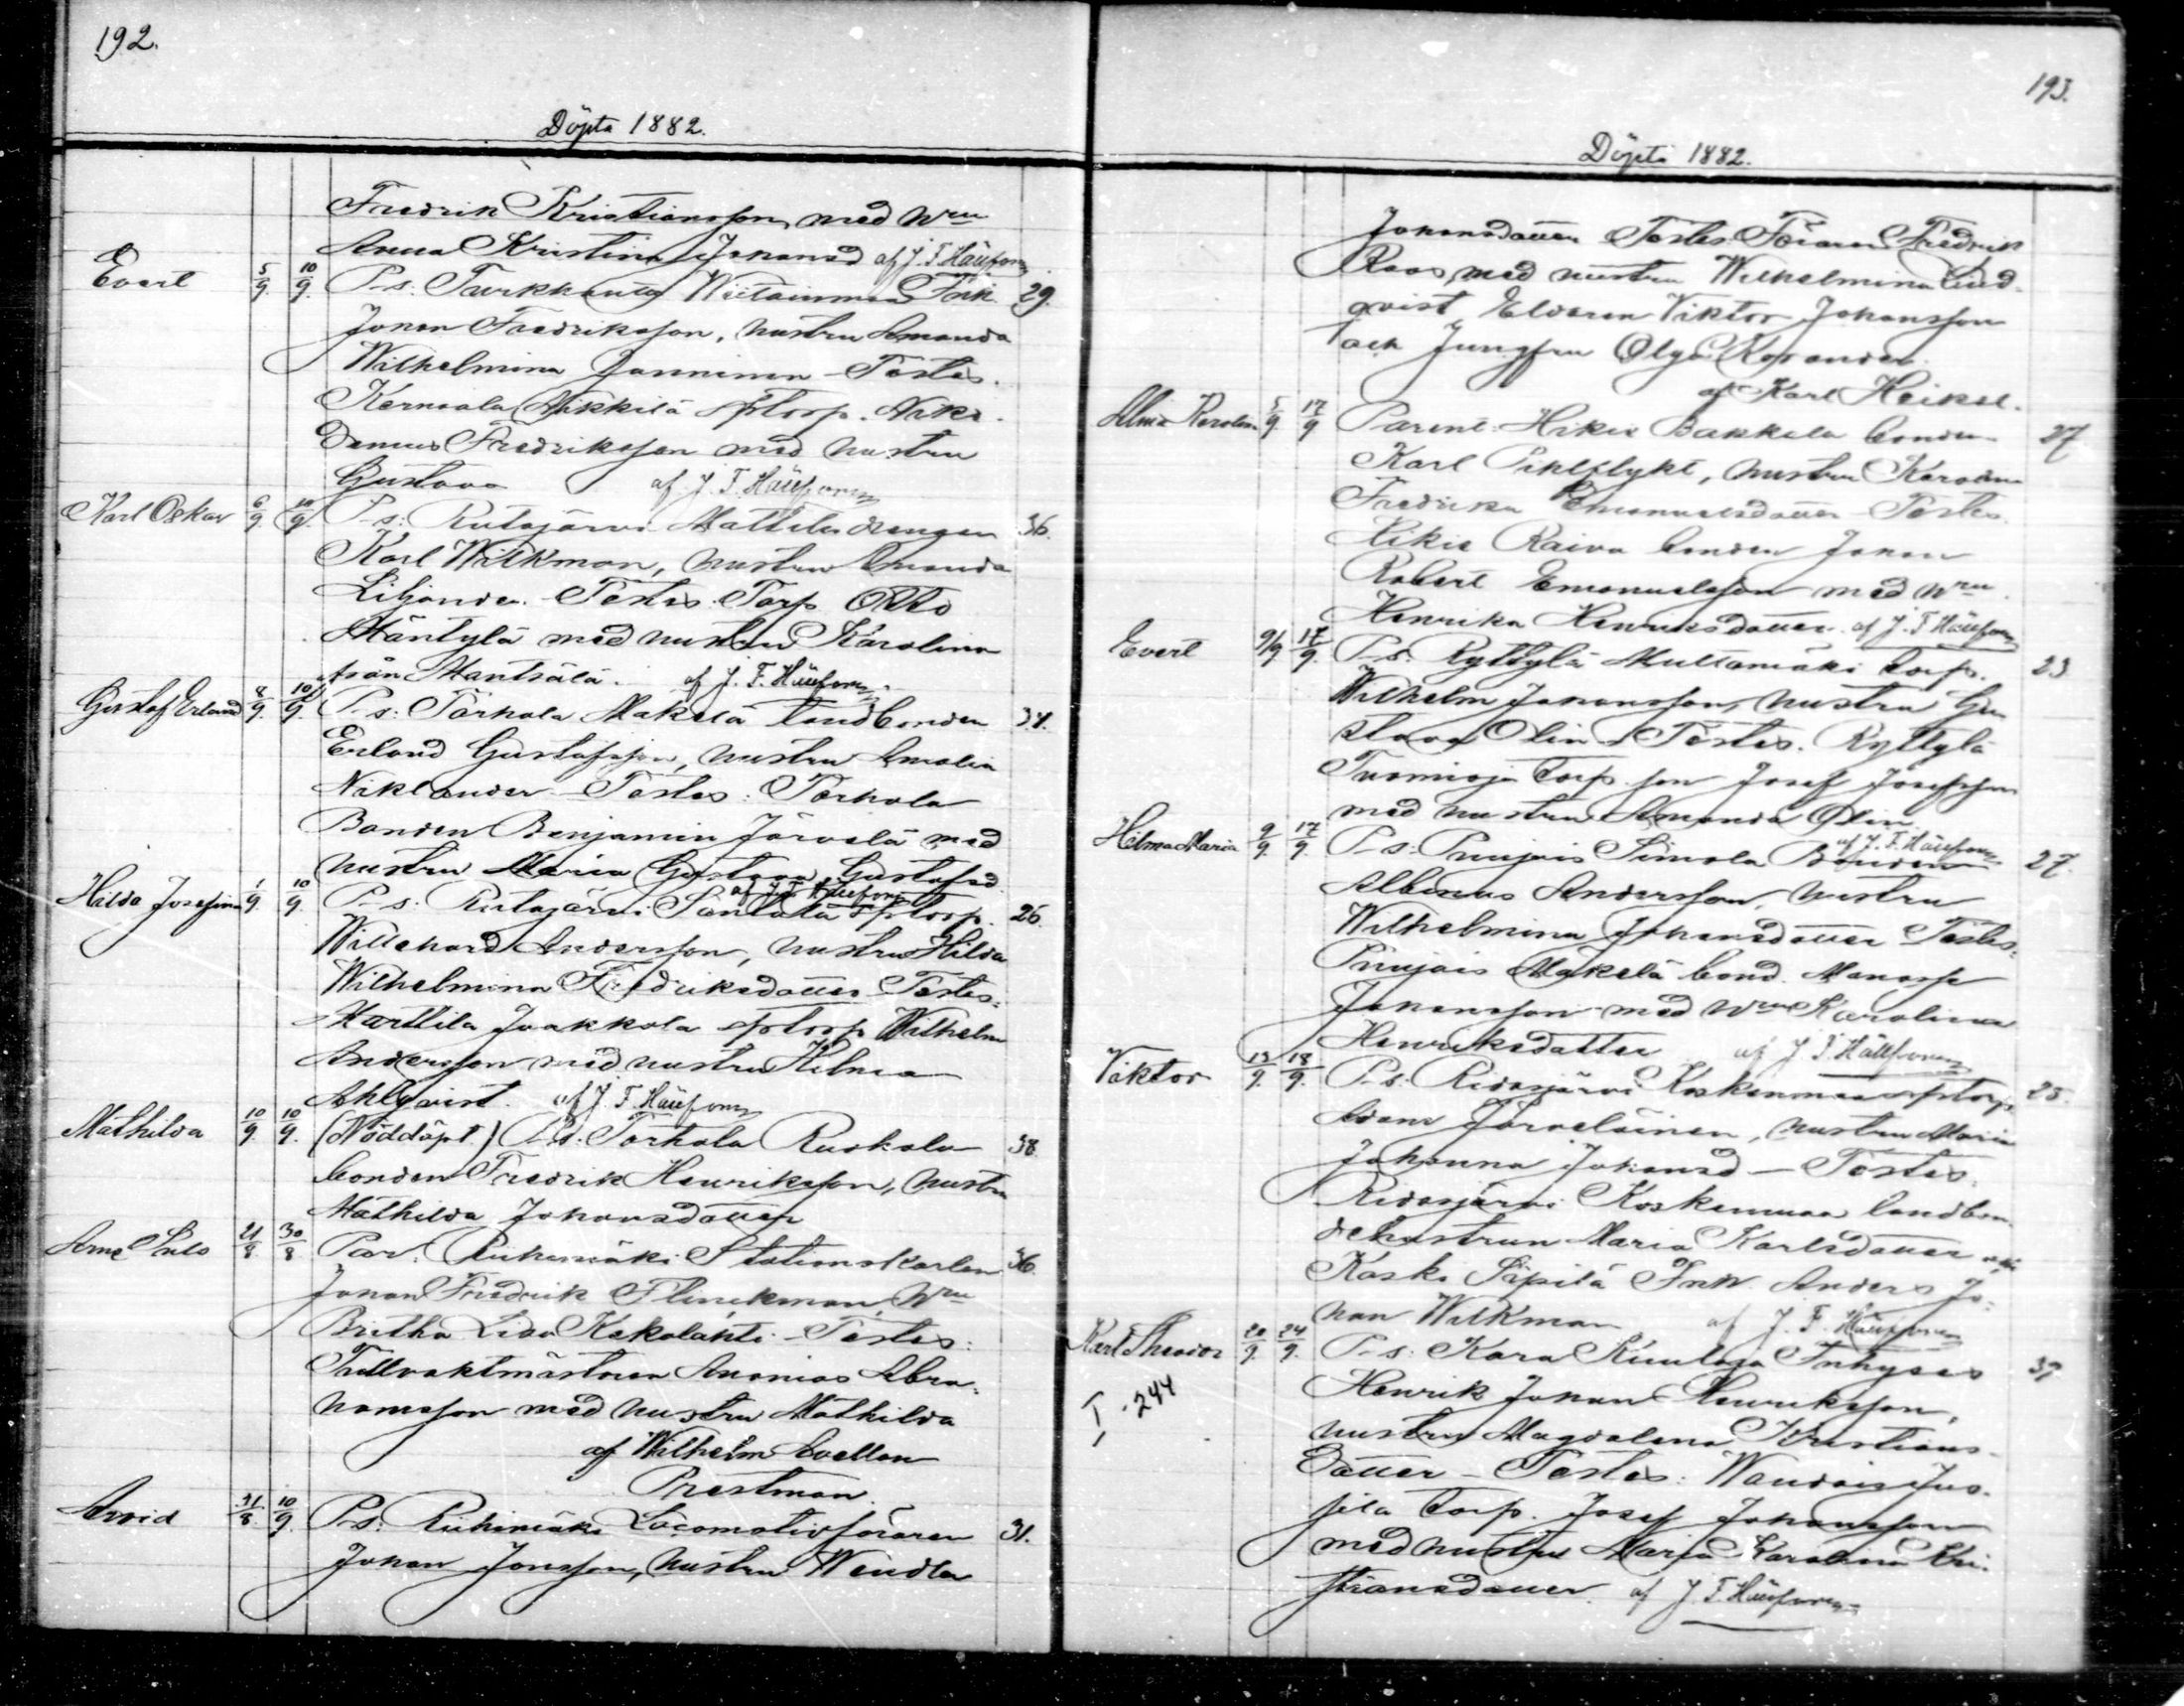 192.
Döpta 1882.
Fredrik Kristiansson med hru
Anna Kristina Johansd af J. F. Hällfors
Evert 5/9. 10/9. P-s: Turkhauta Inh. 29.
Johan Fredriksson, hustru Amanda
Wilhelmina Janninen - Testes.
Kernaala Nikkilä sptorp. Niko-
demus Fredriksson med hustru
Gustava af J. F. Hällfors
Karl Oskar 6/9. 10/9. P-s: Rutajärvi Mattila drengen 36.
Karl Wilkman, hustru Amanda
Liljander - Testes: Torp. Otto
Mäntylä med hustru Karolina
från Mäntsälä. af J. F. Hällfors
Gustaf Erland 8/9. 10/9. P-s: Torhola Mäkelä landbonden 34.
Erland Gustafsson, hustru Amalia
Niklander - Testes: Torhola
Bonden Benjamin Järvelä med
hustru Maria Gustava Gustafsd.
af J. F. Hällfors
Hilda Josefina 1/9. 10/9. P-s: Rutajärvi Santala sptorp. 26.
Willehard Andersson, hustru Hilda
Wilhelmina Fredriksdotter - Testes:
Marttila Jaakkola sptorp Wilhelm
Andersson med hustru Hilma
Ahlqvist. af J. F. Hällfors
Mathilda 10/9. 10/9. (Nöddöpt) P-s: Torhola Ruskala 38.
bonden Fredrik Henriksson, hustru
Mathilda Johansdotter
Arne 21/8. 30/8 Par: Riihimäki Stationskarlen 36.
Johan Fredrik Flinckman, hru
Britha Lisa Kekolahti - Testes:
Tullvaktmästaren Ananias Abra-
hamsson med hustru Mathilda
af Wilhelm
Prestman.
Arvid 31/8. 10/9. P-s: Riihimäki Locomotivföraren 31.
Johan Jonsson, hustru Wendla
193.
Döpta 1882.
Johansdotter Testes: Föraren Fredrik
Roos, med hustru Wilhelmina Lind-
qvist, Eldaren Viktor Johansson
och Jungfru Olga
af Karl Heikel.
Alma Karolina 5/9. 17/9 Parent: Hikiä Bakkala bonden 27
Karl Pihlflykt, hustru Karolina
Fredrika Emanuelsdotter - Testes.
Hikiä Raiva bonden Johan
Robert Emanuelsson med hru
Henrika Henriksdotter. af J. F. Hällfors
Evert 9/9 17/9. P-s: Ryttylä Multamäki torp. 23
Wilhelm Johansson, hustru Gu-
stava Olin - Testes. Ryttylä
Tuomioja torp. son Josef Josefsson
med hustru Amanda Olin
af J. F. Hällfors
Hilma Maria 9/9. 17/9. P-s: Puujais Simola Bonden 27.
Albinus Andersson, hustru
Wilhelmina Johansdotter Testes:
Puujais Mäkelä bond. Manasse
Johansson med hru Karolina
Henriksdotter af J. F. Hällfors
Viktor 13/9. 18/9. P-s: Ridasjärvi Koskenmaa sptorp. 25.
Adam Järveläinen, hustru Maria
Johanna Johansd - Testes.
Ridasjärvi Koskenmaa landbon-
dehustrun Maria Karlsdotter och
Koski Sipilä Inh. Anders Jo-
han Wilkman af J. F. Hällfors
Karl Theodor 20/9. 24/9. P-s: Kara Kuuloja Inhyses 39
I - 244
Henrik Johan Henriksson,
hustru Magdalena Kristians-
dotter - Testes: Wandais Jus-
sila torp. Josef Johansson
med hustru Maria Karolina Kri-
stiansdotter. af J. F. Hällfors